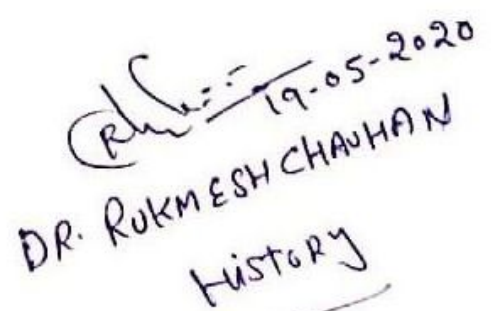 19-05-2020
DR. RUKMESH CHAUHAN
HISTORY